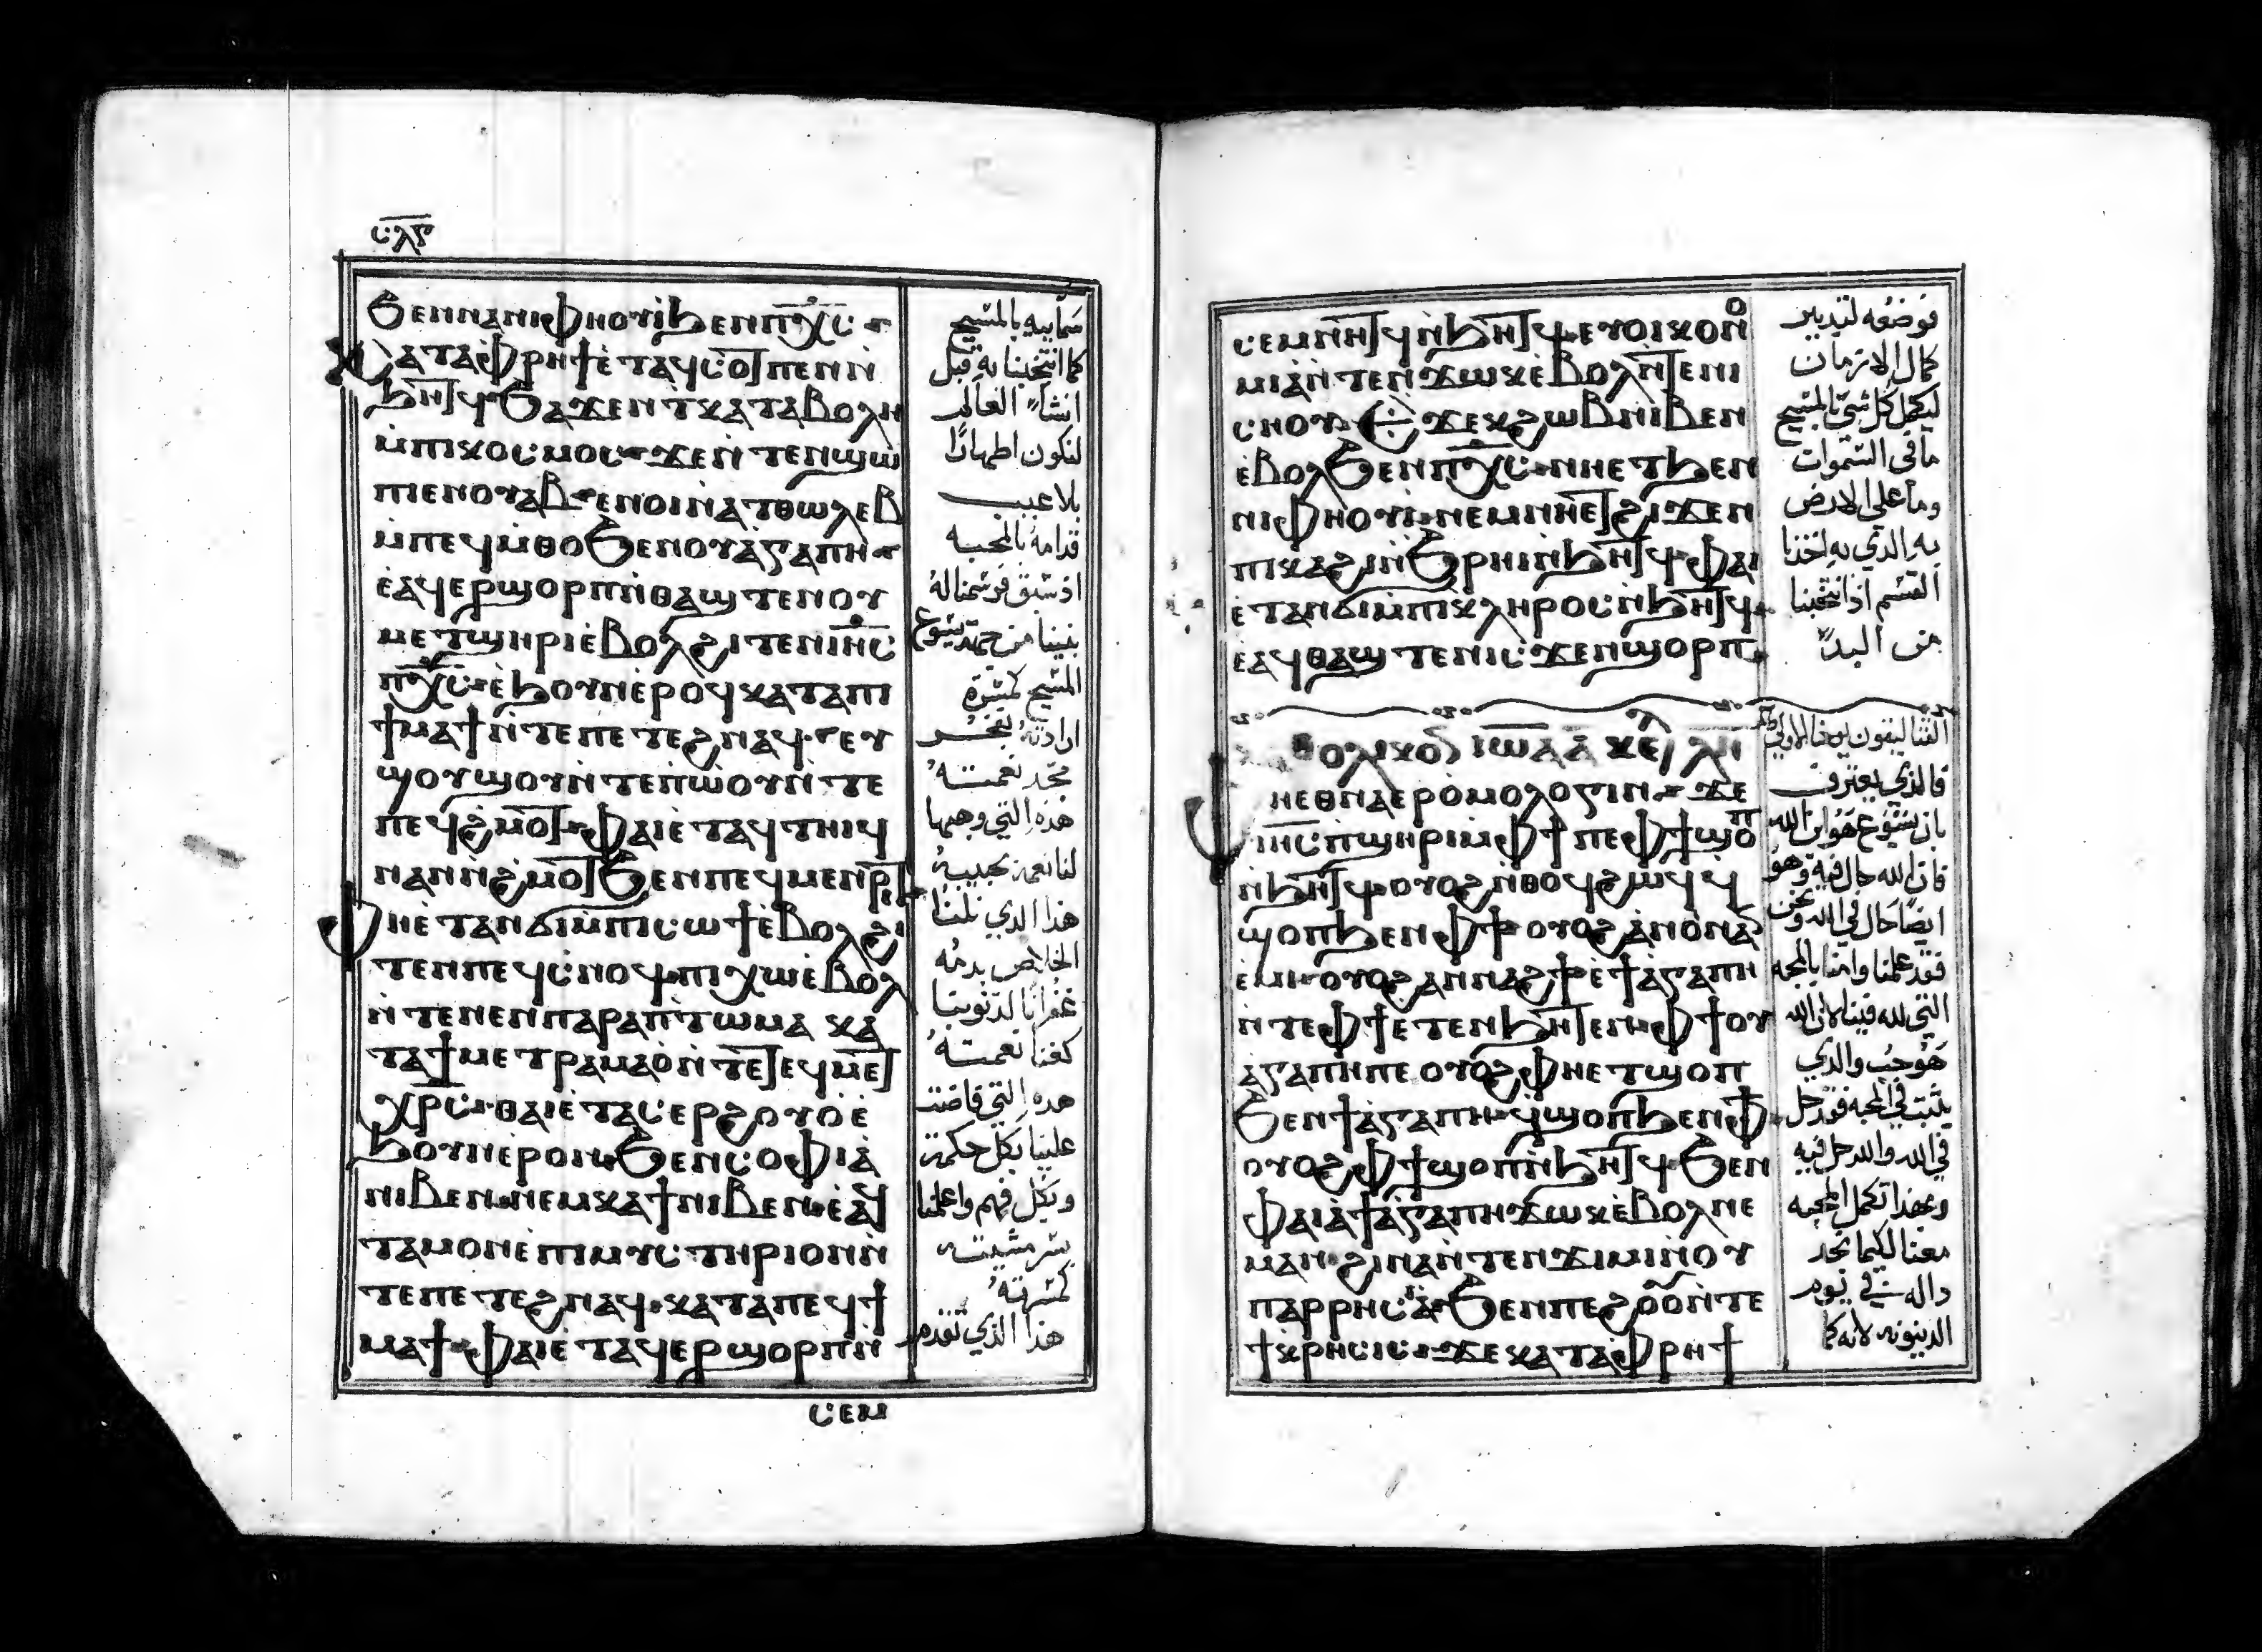 ⲥⲗⲋ
ϧⲉⲛⲛⲁⲛⲓⲫⲏⲟⲩⲓ̀ϧⲉⲛⲡⲭ̅ⲥ̅
ⲕⲁⲧⲁⲫⲣⲏϯⲉ̀ⲧⲁϥⲥⲟⲧⲡⲉⲛⲛ̀
ϧⲏⲧϥϧⲁϫⲉⲛⲧⲕⲁⲧⲁⲃⲟⲗⲏ
ⲙ̀ⲡⲓⲕⲟⲥⲙⲟⲥϫⲉⲛ̀ⲧⲉⲛϣⲱ
ⲡⲓⲉⲛⲟⲩⲁⲃⲉⲛⲟⲓⲛ̀ⲁⲧⲑⲱⲗⲉⲃ
ⲙ̀ⲡⲉϥⲙ̀ⲑⲟϧⲉⲛⲟⲩⲁ̀ⲅⲁⲡⲏ
ⲉ̀ⲁϥⲉⲣϣⲟⲣⲡⲛ̀ⲑⲁϣⲧⲉⲛⲟⲩ
ⲙⲉⲧϣⲏⲣⲓⲉ̀ⲃⲟⲗϩⲓⲧⲉⲛⲓⲏ̅ⲥ̅
ⲡⲭ̅ⲥ̅ⲉ̀ϧⲟⲩⲛⲉ̀ⲣⲟϥⲕⲁⲧⲁⲡⲓ
ϯⲙⲁϯⲛ̀ⲧⲉⲡⲉⲧⲉϩⲛⲁϥⲉⲩ
ϣⲟⲩϣⲟⲩⲛ̀ⲧⲉⲡⲱ̀ⲟⲩⲛ̀ⲧⲉ
ⲡⲉϥϩⲙⲟⲧⲫⲁⲓⲉ̀ⲧⲁϥⲧⲏⲓϥ
ⲛⲁⲛⲛ̀ϩⲙⲟⲧϧⲉⲛⲡⲉϥⲙⲉⲛⲣⲓⲧ
ⲫⲏⲉ̀ⲧⲁⲛϭⲓⲙ̀ⲡⲓⲥⲱϯⲉ̀ⲃⲟⲗϩⲓ
ⲧⲉⲛⲡⲉϥⲥ̀ⲛⲟϥⲡⲓⲭⲱⲉ̀ⲃⲟⲗ
ⲛ̀ⲧⲉⲛⲉⲛⲡⲁⲣⲁⲡⲧⲱⲙⲁ ⲕⲁ
ⲧⲁϯⲙⲉⲧⲣⲁⲙⲁⲟ̀ⲛ̀ⲧⲉⲧⲉϥⲙⲉⲧ
ⲭⲣ̅ⲥ̅ⲑⲁⲓⲉ̀ⲧⲁⲥⲉⲣϩⲟⲩⲟ̀ⲉ̀
ϧⲟⲩⲛⲉ̀ⲣⲟⲛϧⲉⲛⲥⲟⲫⲓⲁ̀
ⲛⲓⲃⲉⲛⲛⲉⲙⲕⲁϯⲛⲓⲃⲉⲛⲉ̀ⲁϥ
ⲧⲁⲙⲟⲛⲉ̀ⲡⲓⲙⲩⲥⲧⲏⲣⲓⲟⲛⲛ̀
ⲧⲉⲡⲉⲧⲉϩⲛⲁϥⲕⲁⲧⲁⲡⲉϥϯ
ⲙⲁϯⲫⲁⲓⲉ̀ⲧⲁϥⲉⲣϣⲟⲣⲡⲛ̀
ⲥⲉⲙ
سمايه بالمسيح
كما انتخبنا به قبل
انشاء العالم
لنكون اطهارًا
بلا عيب
قدامه بالمحبه
اذ سبق فرسمنا له
المسيح كمسرة
ارادته بفخر
مجد نعمته
هذه التي وهبها
هذا الذي نلنا
الخلاص بدمه
غفرانًا لذنوبنا
كغنا نعمته
هذه التي فاضت
علينا بكل حكمة
وبكل فهم واعلمنا
بسر مشيته
كمسرته
هذا الذي تقدم
ⲥⲉⲙⲛⲏⲧϥⲛ̀ϧⲏⲧϥⲉⲩⲟⲓⲕⲟⲛⲟ
ⲙⲓⲁ̀ⲛ̀ⲧⲉⲛ̀ϫⲱⲕⲉ̀ⲃⲟⲗⲛ̀ⲧⲉⲛⲓ
ⲥⲛⲟⲩϫⲉⲕϩⲱⲃⲛⲓⲃⲉⲛ
ⲉ̀ⲃⲟⲗϧⲉⲛⲡⲭ̅ⲥ̅ⲛⲏⲉⲧϧⲉⲛ
ⲛⲓⲫⲏⲟⲩⲓ̀ⲛⲉⲙⲛⲏⲉⲧϩⲓϫⲉⲛ
ⲡⲓⲕⲁϩⲓⲛ̀ϧⲣⲏⲓⲛ̀ϧⲏⲧϥⲫⲁⲓ
ⲉ̀ⲧⲁⲛϭⲓⲙ̀ⲡⲓⲕⲗⲏⲣⲟⲥⲛ̀ϧⲏⲧϥ
ⲉ̀ⲁϥⲑⲁϣⲧⲉⲛⲓⲥϫⲉⲛϣⲟⲣⲡ
ⲑⲟⲗⲓⲕⲟⲛ ⲓⲱⲁ ⲁ̅ ⲕⲉ
ⲫⲏⲉⲑⲛⲁⲉⲣⲟ̀ⲙⲟⲗⲟⲅⲓⲛϫⲉ
ⲓⲏ̅ⲥ̅ⲡ̀ϣⲏⲣⲓⲙ̀ⲫϯⲡⲉⲫϯϣⲟⲡ
ⲛ̀ϧⲏⲧϥⲟⲩⲟϩⲛ̀ⲑⲟϥϩⲱϥϥ
ϣⲟⲡϧⲉⲛⲫϯⲟⲩⲟϩⲁ̀ⲛⲟⲛⲁ̀ⲛ
ⲉ̀ⲙⲓⲟⲩⲟϩⲁⲛⲛⲁϩϯⲉ̀ϯⲁ̀ⲅⲁⲡⲏ
ⲛ̀ⲧⲉⲫϯⲉⲧⲉⲛ̀ϧⲏⲧⲉⲛⲫϯⲟⲩ
ⲁ̀ⲅⲁⲡⲏⲡⲉⲟⲩⲟϩⲫⲏⲉⲧϣⲟⲡ
ϧⲉⲛϯⲁ̀ⲅⲁⲡⲏϥ̀ϣⲟⲡϧⲉⲛⲫϯ
ⲟⲩⲟϩⲫϯϣⲟⲡⲛ̀ϧⲏⲧϥϧⲉⲛ
ⲫⲁⲓⲁ̀ϯⲁ̀ⲅⲁⲡⲏϫⲱⲕⲉ̀ⲃⲟⲗⲛⲉ
ⲙⲁⲛϩⲓⲛⲁⲛ̀ⲧⲉⲛϫⲓⲙⲓⲛ̀ⲟⲩ
ⲡⲁⲣⲣⲏⲥⲓⲁ̀ϧⲉⲛⲡⲉϩⲟⲟⲩⲛ̀ⲧⲉ
ϯⲕⲣⲏⲥⲓⲥϫⲉⲕⲁⲧⲁⲫⲣⲏϯ
فوضعه لتدبير
كمال الازمان
ليكمل كل شي بالمسيح
ما في السموات
وما على الارض
به الذي به اخذنا
القسم اذ انتخبنا
من البدء
فالذي يعترف
بان يسوع هو ابن الله
فان الله حال فيه وهو
ايضًا حال في الله ونحن
فقد علمنا وامنا بالمحبه
التي لله فينا لان الله
هو حب والذي
يثبت في المحبه فقد حل
في الله والله حل فيه
وبهذا تكمل المحبه
معنا لكيما نجد
داله في يوم
الدينونه لانه كما